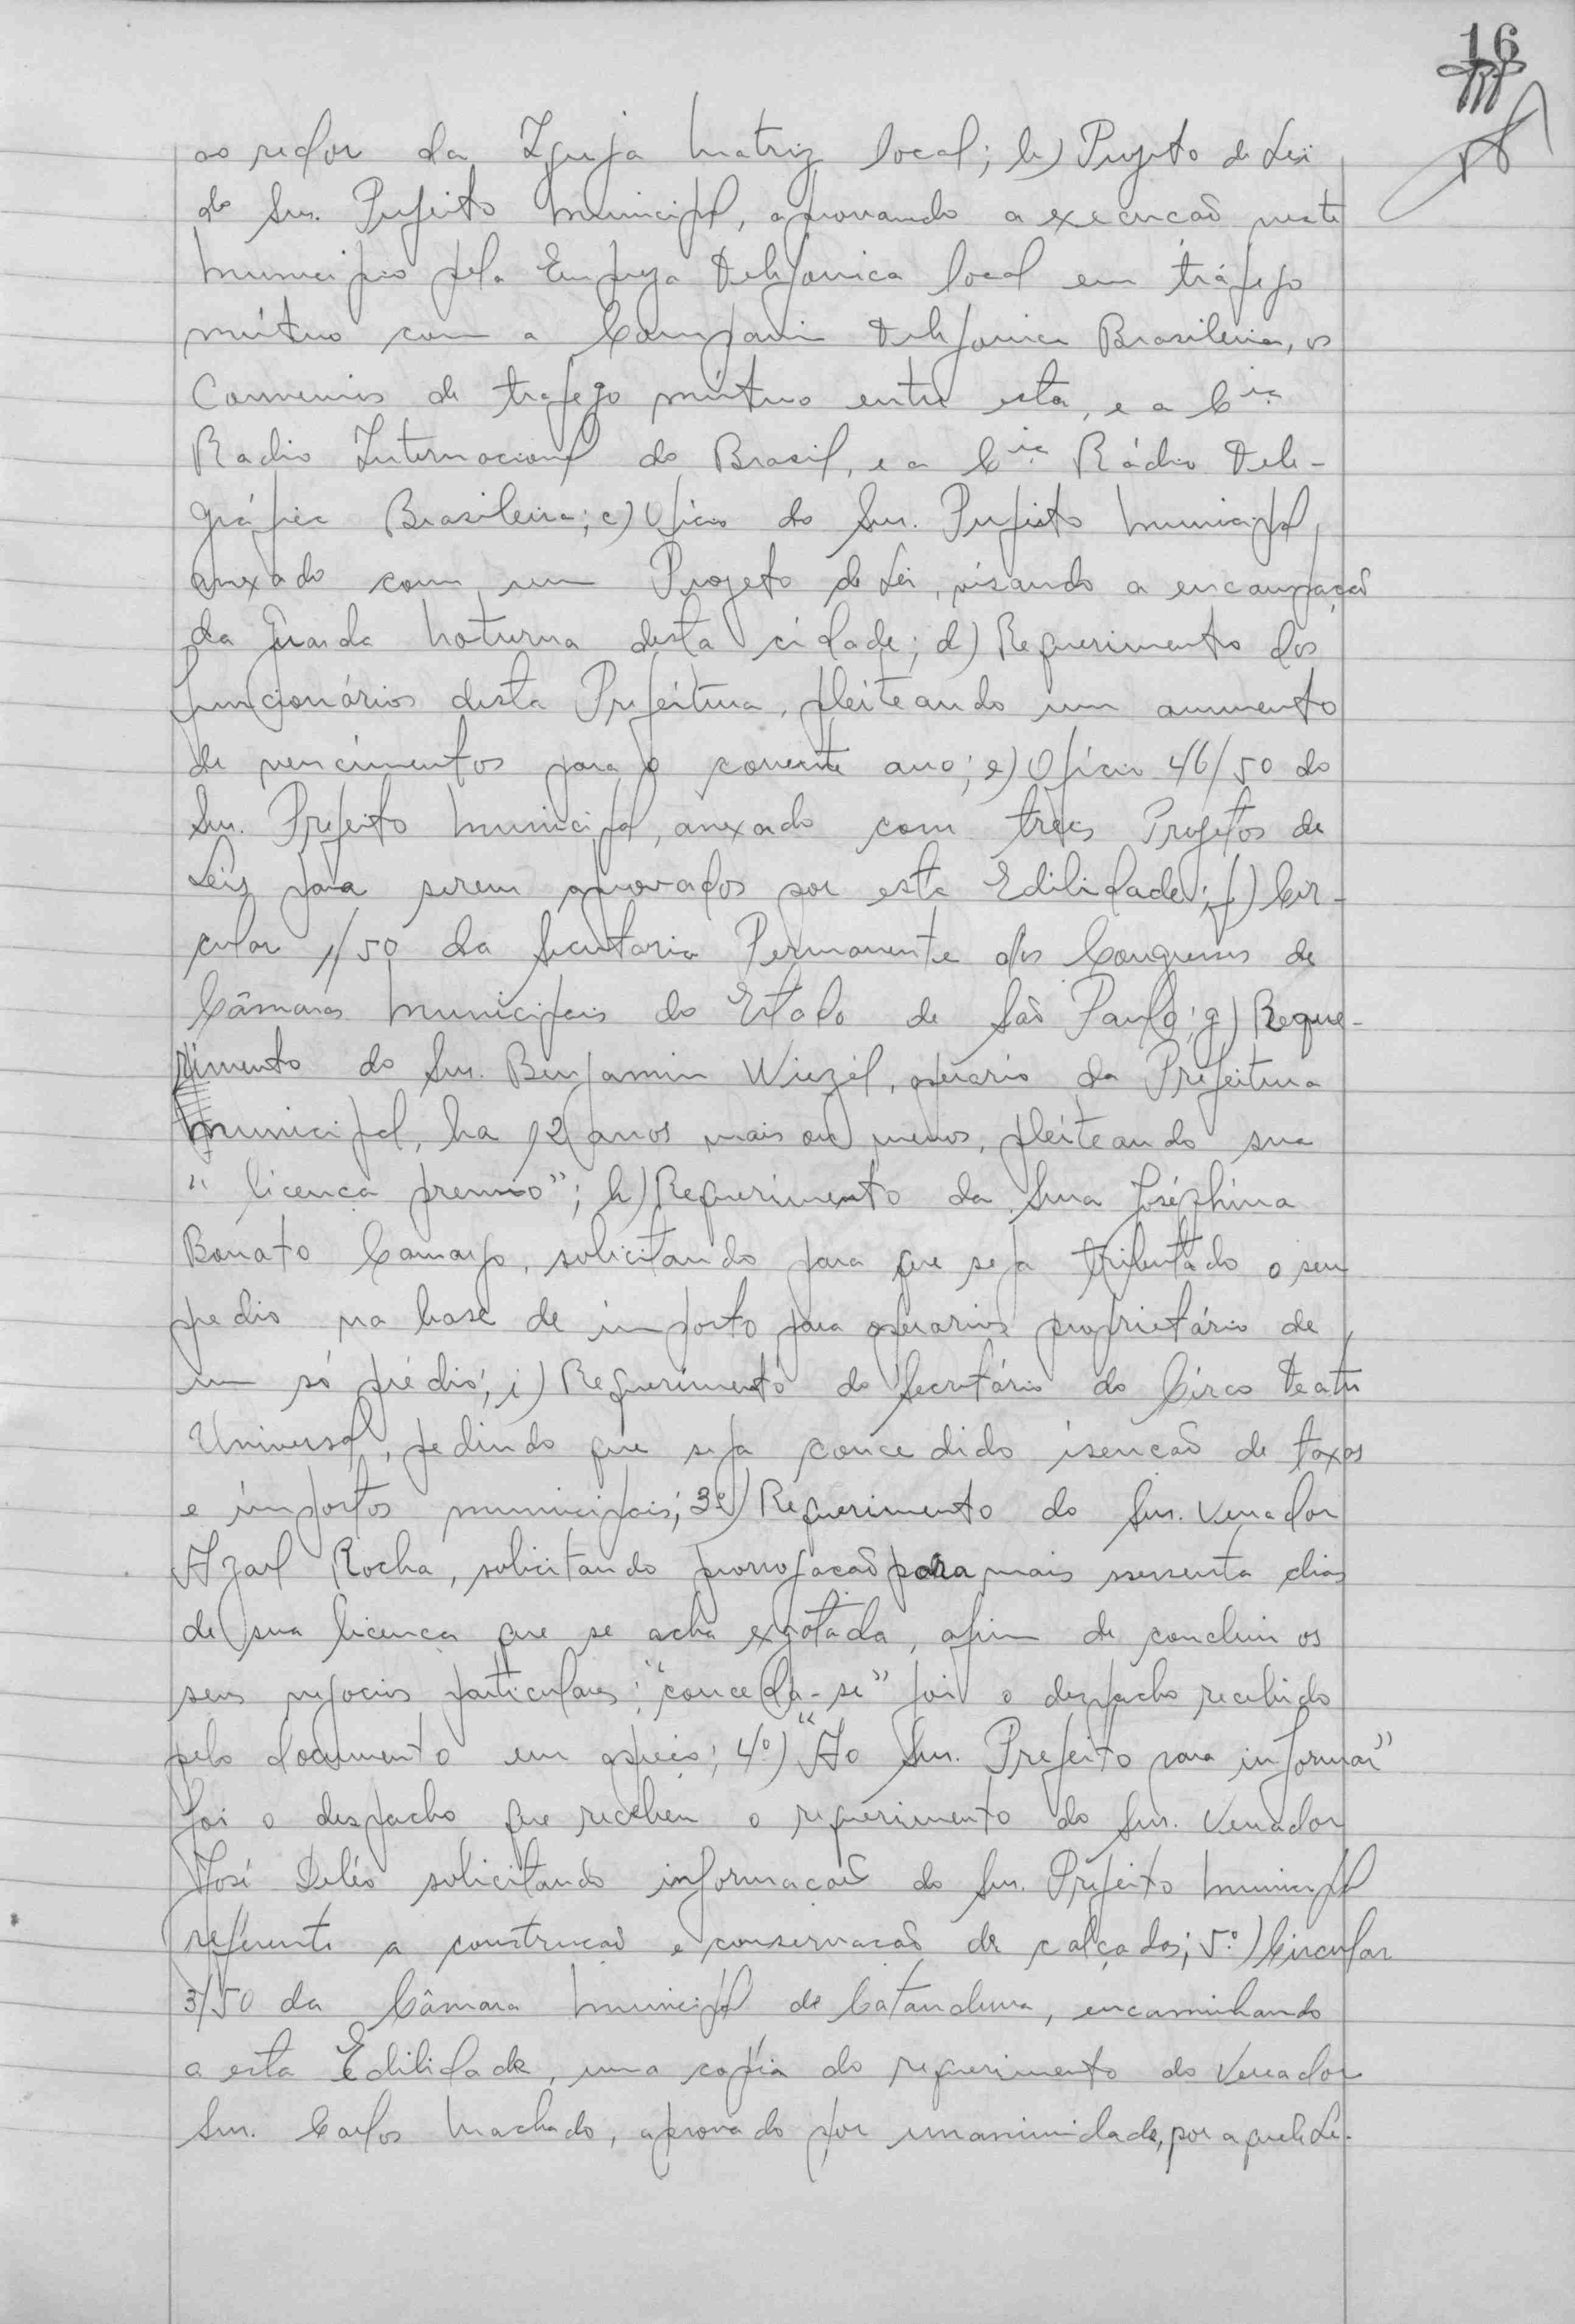 16
ao redor da Igreja Matriz local; b) Projeto de Lei
do Snr. Prefeito Municipal, aprovando a execucaõ neste
Municipio pela Empreza Telefonica local em tráfego
mútuo com a Companhia Telefonica Brasileira, os
Convenios de trafego mútuo entre esta, e a Cia
Radio Internacional do Brasil, e a Cia Rádio Tele-
gráfica Brasileira; c) Oficio do Snr. Prefeito Municipal,
anexado com um Projeto de Lei, visando a encampaçaõ
da Guarda Noturna desta cidade; d) Requerimento dos
funcionários desta Prefeitura, pleiteando um aumento
de vencimentos para o corrente ano; e) Oficio 46/50 do
Snr. Prefeito Municipal, anexado com trêes Projetos de
Leis para serem aprovados por esta Edilidade; f) Cir-
cular 1/50 da Secretaria Permanente dos Congressos de
Câmaras Municipais do Estado de Saõ Paulo; g) Reque-
rimento do Snr. Benjamin Wiezel, operario da Prefeitura
Municipal, ha 12 anos mais ou menos, pleiteando sua
"licença premio"; h) Requerimento da Snra Joséphina
Bonato Camargo, solicitando para que seja tributado o seu
pedio na base de imposto para operarios proprietário de
um só prédio; i) Requerimento do Secretário do Circo Teatro
Universal, pedindo que seja concedido isencaõ de taxas
e impostos municipais; 3º) Requerimento do Snr. Vereador
Azael Rocha, solicitando prorrogacaõ para mais sessenta dias
de sua licenca que se acha exgotada, afim de concluir os
seus negocios particulares; "conceda-se" foi o despacho recebido
pelo documento em apreço; 4º) "Ao Snr. Prefeito para informar"
foi o despacho que recebeu o requerimento do Snr. Vereador
José solicitando informacaõ do Snr. Prefeito Municipal
referente a construcaõ e conservacaõ de calçadas; 5º) Circular
3/50 da Câmara Municipal de Catanduva, encaminhando
a esta Edilidade, uma copia do requerimento do Vereador
Snr. Carlos Machado, aprovado por unanimidade, por aquele Le-